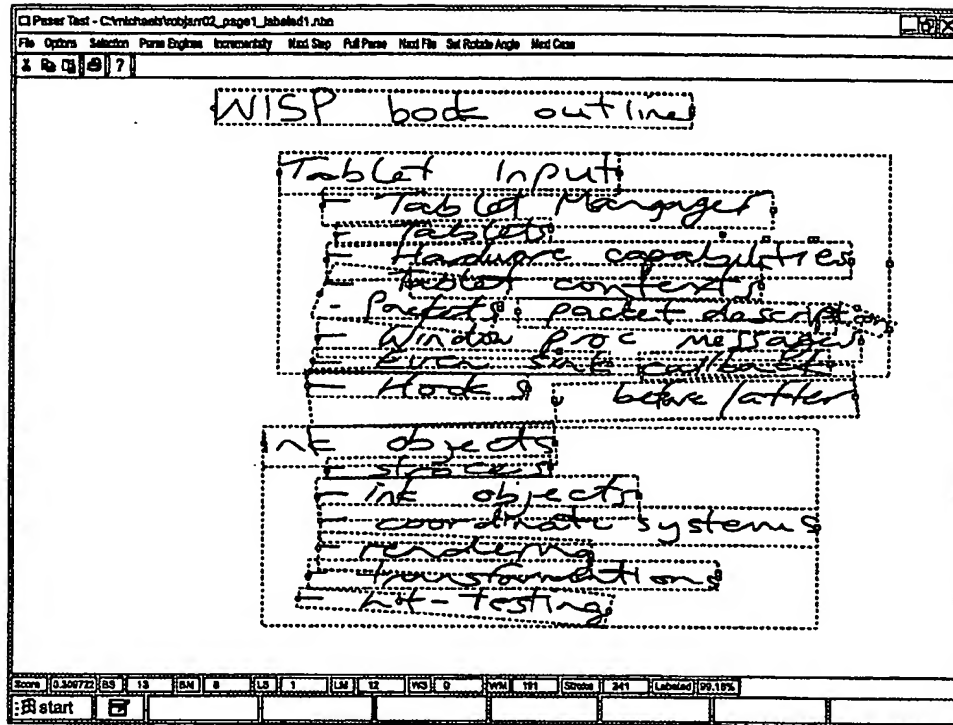 Paser Test - C:\michaels\robjarr02_page1_labeled1.nbn
File Options Selection Parse Engines Incrementality Next Step Full Parse Next File Set Rotate Angle Next Case
?
WISP book outline
Tablet Input
- Tablet Mangager
- Tablets
- Hardware capabilities
- Tablet contexts
- Packets, packet description
- Window Proc messages
- Even sink callback
- Hooks before/after
Ink objects
- strokes
- ink objects
- coordinate systems
- rendering
- transformations
- hit-testing
Score 0.309722 BS 13 BM 8 LS 1 LM 12 WS 0 WM 191 Stroke 341 Labeled 99.16%
start